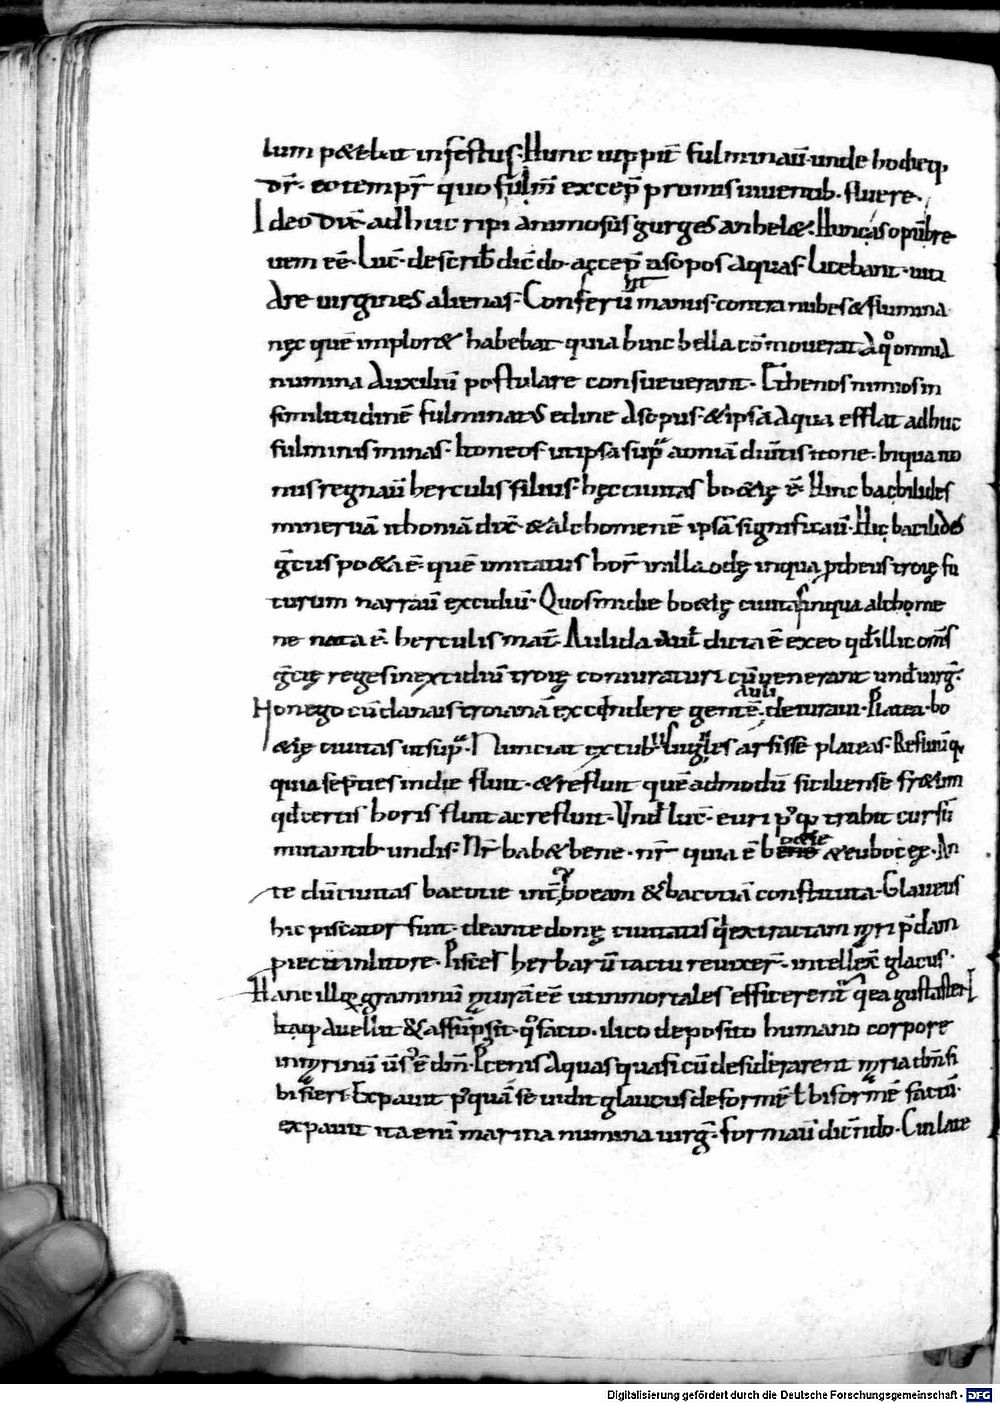 lum p&ebat infestus. Hunc iuppit̄ fulminau̅. unde hodieq;
dr̄. eo tempr̄ quo fulm̄ excep̄ prunis iuuentib. fluere.
Ideo dic̄. adhuc ripis animosus gurges anhel&. Hunc asopu̅ bre
uem ee̅. Luc̄. describ̄ dic̄do. accep̄ asopos aquas. Licebant. uiti
are uirgines alienas. Conseru̅t manus. contra nubes & flumina
nec que̅ implor& habebat quia huic bella co̅mouerat a qo omnia
numina auxiliu̅ postulare consueuerant. Ethenos nimios in
similitudine̅ fulminatus edine asopus. & ipsa aqua efflat adhuc
fulminis minas. Itoneos. ut ipsa sup̄ aonia̅ du̅tis itone. In qua no
mus regnau̅ herculis filius. hęc ciuitas bo&ię e̅. Hinc bachilides
minerua̅ ithonia̅ dix̄. & alchomene̅ ipsa̅ significau̅. Hic bacilides
gc̅us po&a e̅. que̅ imitatus hor̄ in illa odę in qua protheus troię fu
turum narrau̅ excidiu̅. Quos miche bo&ię ciuitas in qua alchome
ne nata e̅. herculis mat̄. Aulida aul̄ dicta e̅ ex eo qd̄ illic om̅s
gc̅ię reges in excidiu̅ troię coniuraturi cu̅ uenerant und̄ uirg̅.
Non ego cu̅ danais troiana̅ excindere gente̅. auli de iuraui. Platea. bo
&ię ciuitas ut sup̄. Nunciat excub. uigiles arsisse plateas. Refluu̅q;
quia septies in die fluit. & refluit que̅admodu̅ siciliense fr&um
qd̄ certis horis fluit ac refluit. Und̄ luc̄. euri p̄q; trahit cursu̅
mutantib. undis. Nr̄ hab& bene. nr̄ quia e̅ bo&ie & euboeę. An
te du̅ ciuitas baeotie int̄ eoboeam & baeotia̅ constituta. Glaucus
hic piscator fuit. de antedonę ciuitatis qi extractam mari p̄dam
proiecit in litore. Pisces herbaru̅ tactu reuixer̄. intellexit glacus.
Hanc illoꝝ graminu̅ natura̅ ee̅ ut inmortales efficerent̄ qi ea gustasser̄t
Itaq; auellit & assu̅psit. qo facto. ilico deposito humano corpore
in marinu̅ u̅sus e̅ dm̄. Poenis aquas quasi cu̅ desiderarent maria dm̄ si
bi fieri. Expauit p̄qua̅ se uidit glaucus deforme̅ t̄ biforme̅ factu̅.
expauit ita eni̅ marina numina uirg̅. formau̅ dice̅ndo. Cui late